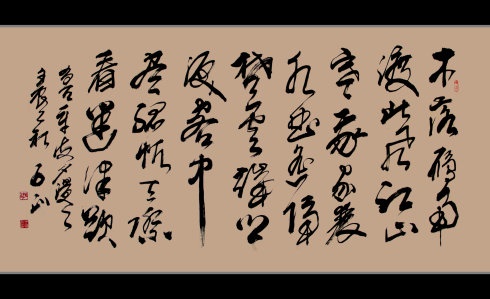 木落雁南
渡北風江上
寒我家襄
水曲遙隔
楚雲端鄉
淚客中
盡孤帆天際
看迷津欲
有問平海夕漫漫